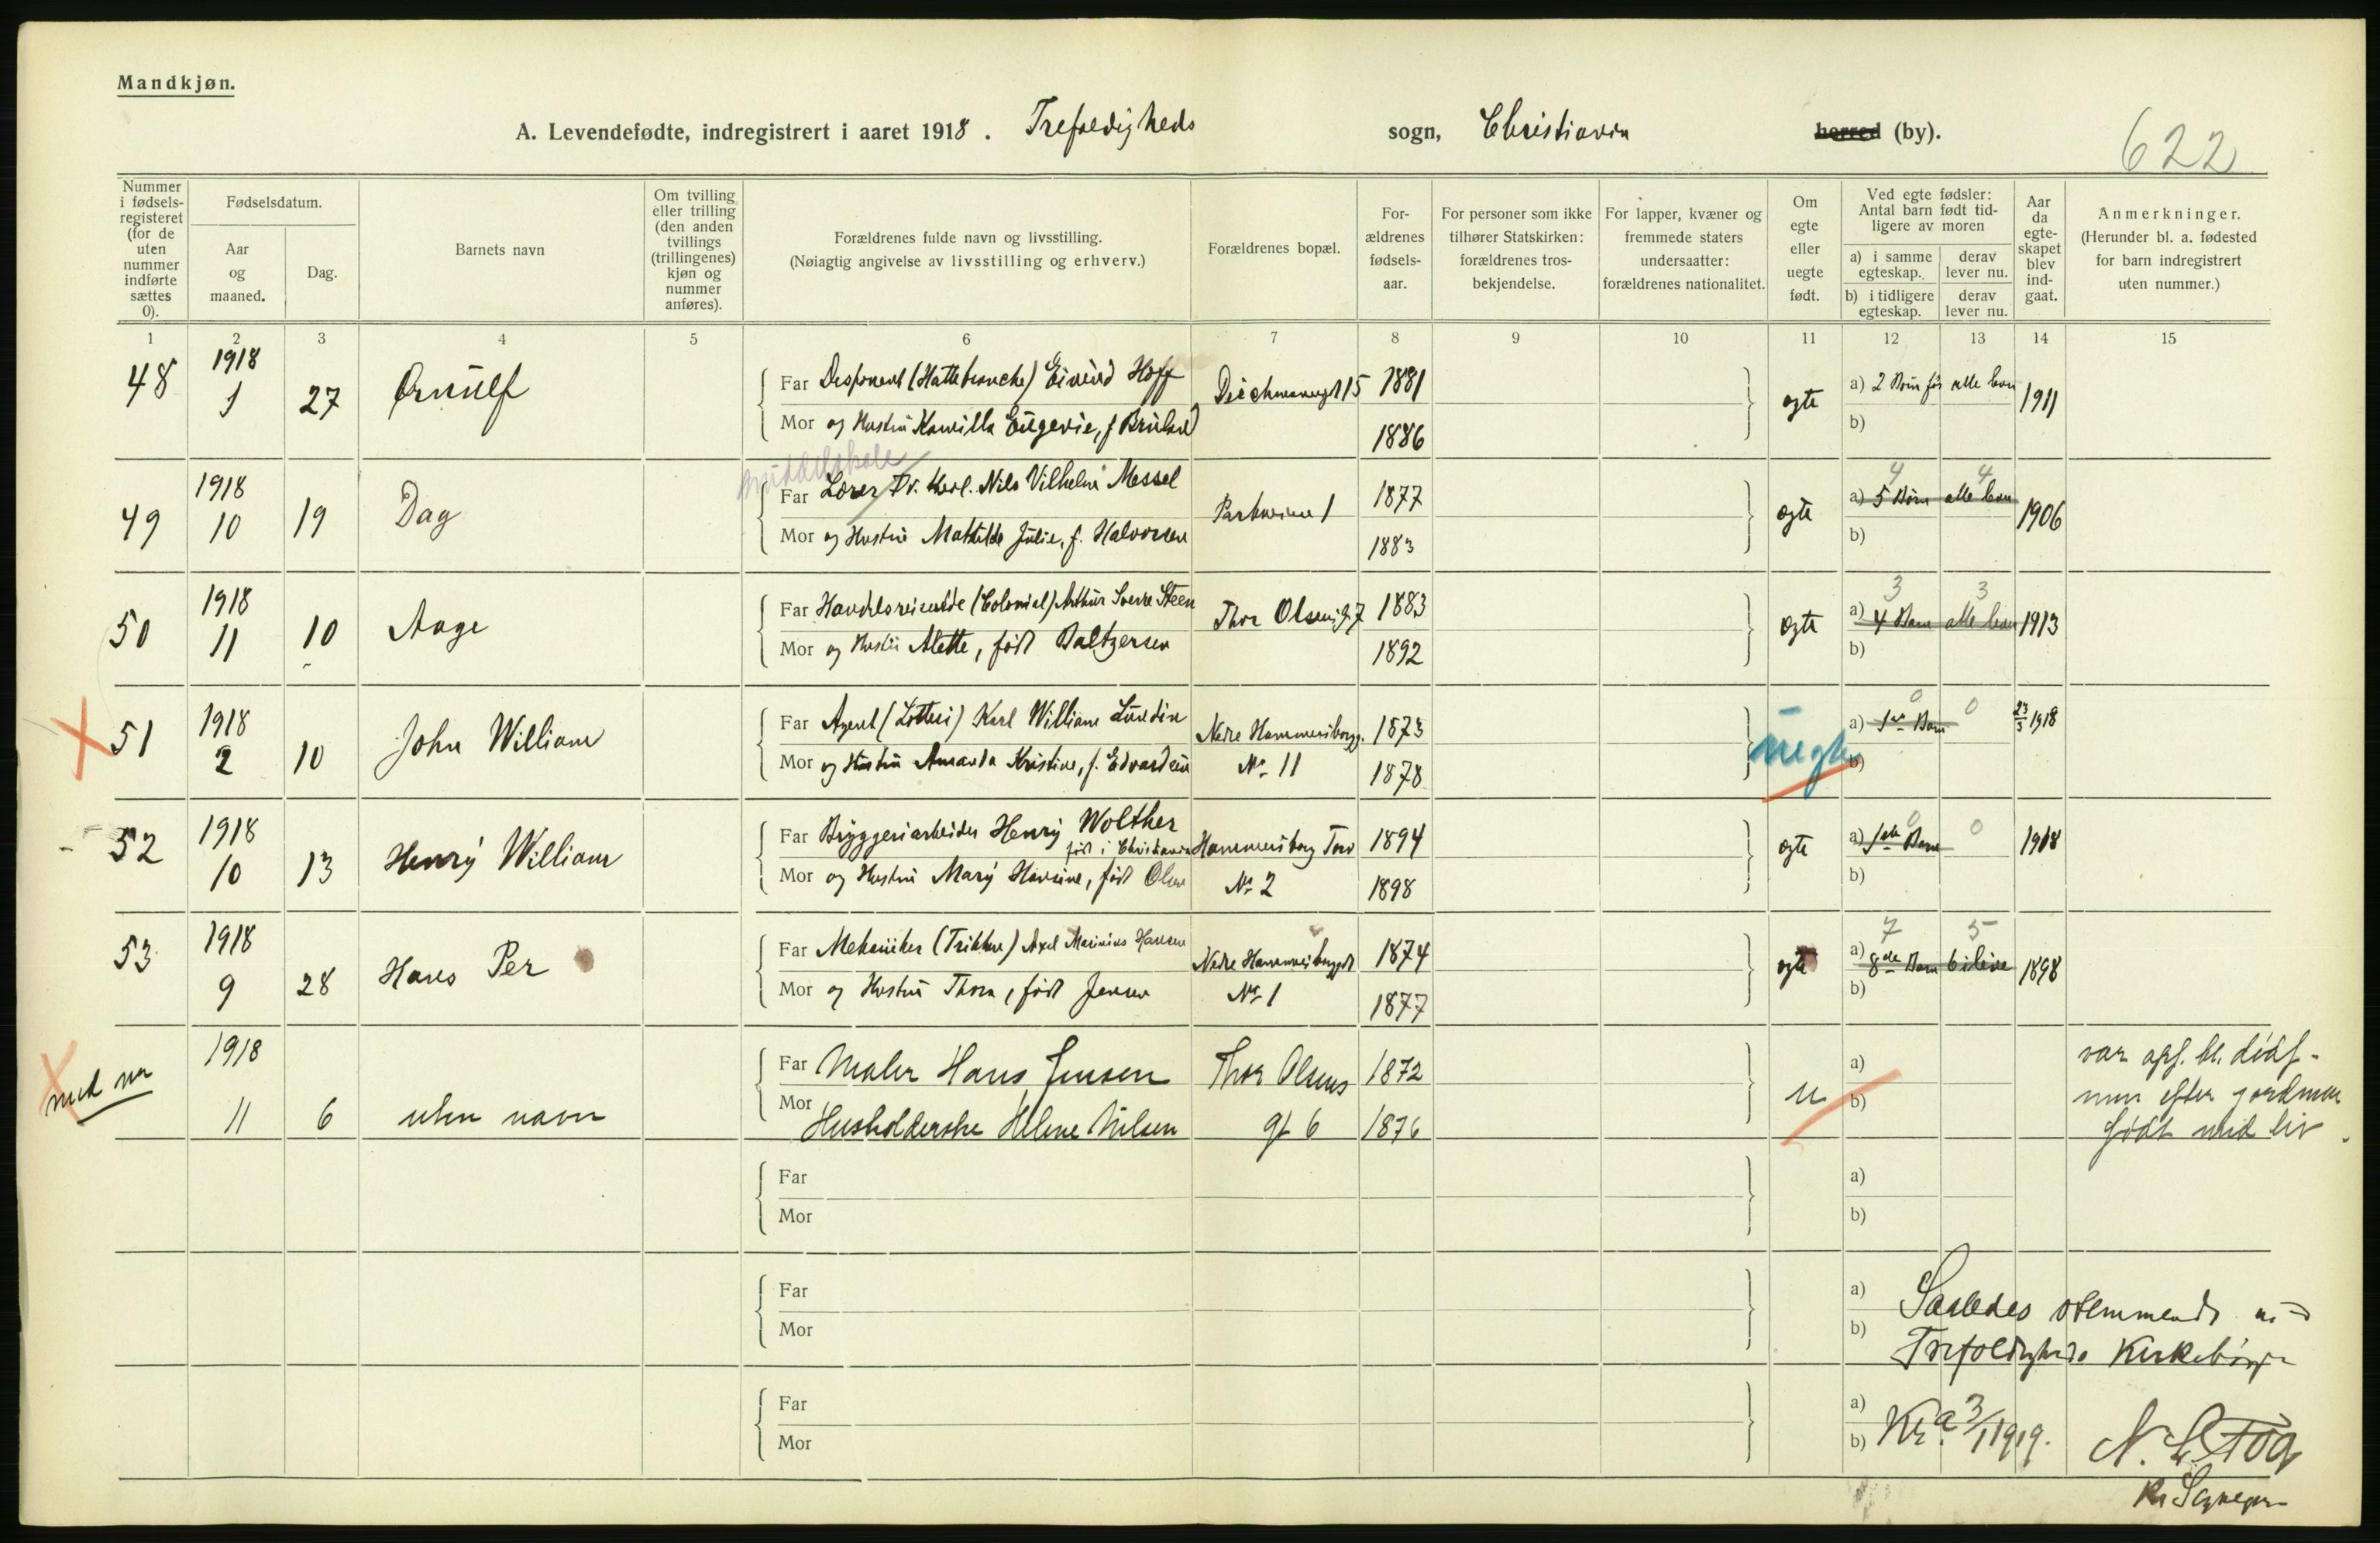 Mandkjøn.
A. Levendefødte, indregistrert i aaret 1918. Trefoldigheds sogn, Christiania herred (by).
622
Nummer i fødselsregisteret (for de uten nummer indførte sættes 0).
Fødselsdatum.
Aar og maaned.
Dag.
Barnets navn
Om tvilling eller trilling (den anden tvillings (trillingenes) kjøn og nummer anføres).
Forældrenes fulde navn og livsstilling.
(Nøiagtig angivelse av livsstilling og erhverv.)
Forældrenes bopæl.
Forældrenes fødselsaar.
For personer som ikke tilhører Statskirken: forældrenes trosbekjendelse.
For lapper, kvæner og fremmede staters undersaatter: forældrenes nationalitet.
Om egte eller uegte født.
Ved egte fødsler: Antal barn født tidligere av moren
a) i samme egteskap.
derav lever nu.
b) i tidligere egteskap.
derav lever nu.
Aar da egteskapet blev indgaat.
Anmerkninger.
(Herunder bl. a. fødested for barn indregistrert uten nummer.)
1 2 3 4 5 6 7 8 9 10 11 12 13 14 15
48 1918 1 27 Ørnulf
Far Disponent (Hattebranche) Eivind Hoff Deichmansgt 15 1881
Mor og Hustru Kamilla Eugenie, f. Bruland 1886
egte a) 2 Børn før alle lever 1911
b)
49 1918 10 19 Dag
middelskole
Far Lærer Nils Vilhelm Messel Parkveien 1 1877
Mor og Hustru Mathilde Julie, f. Halvorsen 1883
egte 4 4 a) 5 Børn alle lever 1906
b)
50 1918 11 10 Aage
Far Handelsreisende (Colonial) Arthur Sverre Steen Thor Olsensg. 7 1883
Mor og Hustru Alette, født Baltzersen 1892
egte 3 3 a) 4 Barn alle lever 1913
b)
51 1918 2 10 John William
Far Agent (Lotteri) Karl William Lundin Nedre Hammersborgg. 1873
Mor og Hustru Amanda Kristine, f. Edvardsen No 11 1878
uegte 0 0 a) 1ste Barn 23/3 1918
b)
52 1918 10 13 Henry William
Far Bryggeriarbeider Henry Wolther Hammersborg Torv 1894
født i Christiania
Mor og Hustru Mary Hansine, født Olsen No 2 1898
egte 0 0 a) 1ste Barn 1918
b)
53 1918 9 28 Hans Per
Far Mekaniker (Trikken) Axel Marinius Hansen Nedre Hammersborggt 1874
Mor og Hustru Thora, født Jensen No 1 1877
egte 7 5 a) 8de Barn 6 ilive 1898
b)
med nr 1918 11 6 uten navn
Far Maler Hans Jensen Thor Olsens 1872
Mor Husholderske Helene Nilsen gt 6 1876
u a)
b)
var opf. bl. dødf.
men efter jordmor
født med liv.
Far
Mor
a)
b)
Far
Mor
a)
b)
Saaledes stemmende
Trefoldigheds Kirkebøger
Far
Mor
a)
b)
Kr.a 3/1 1919.